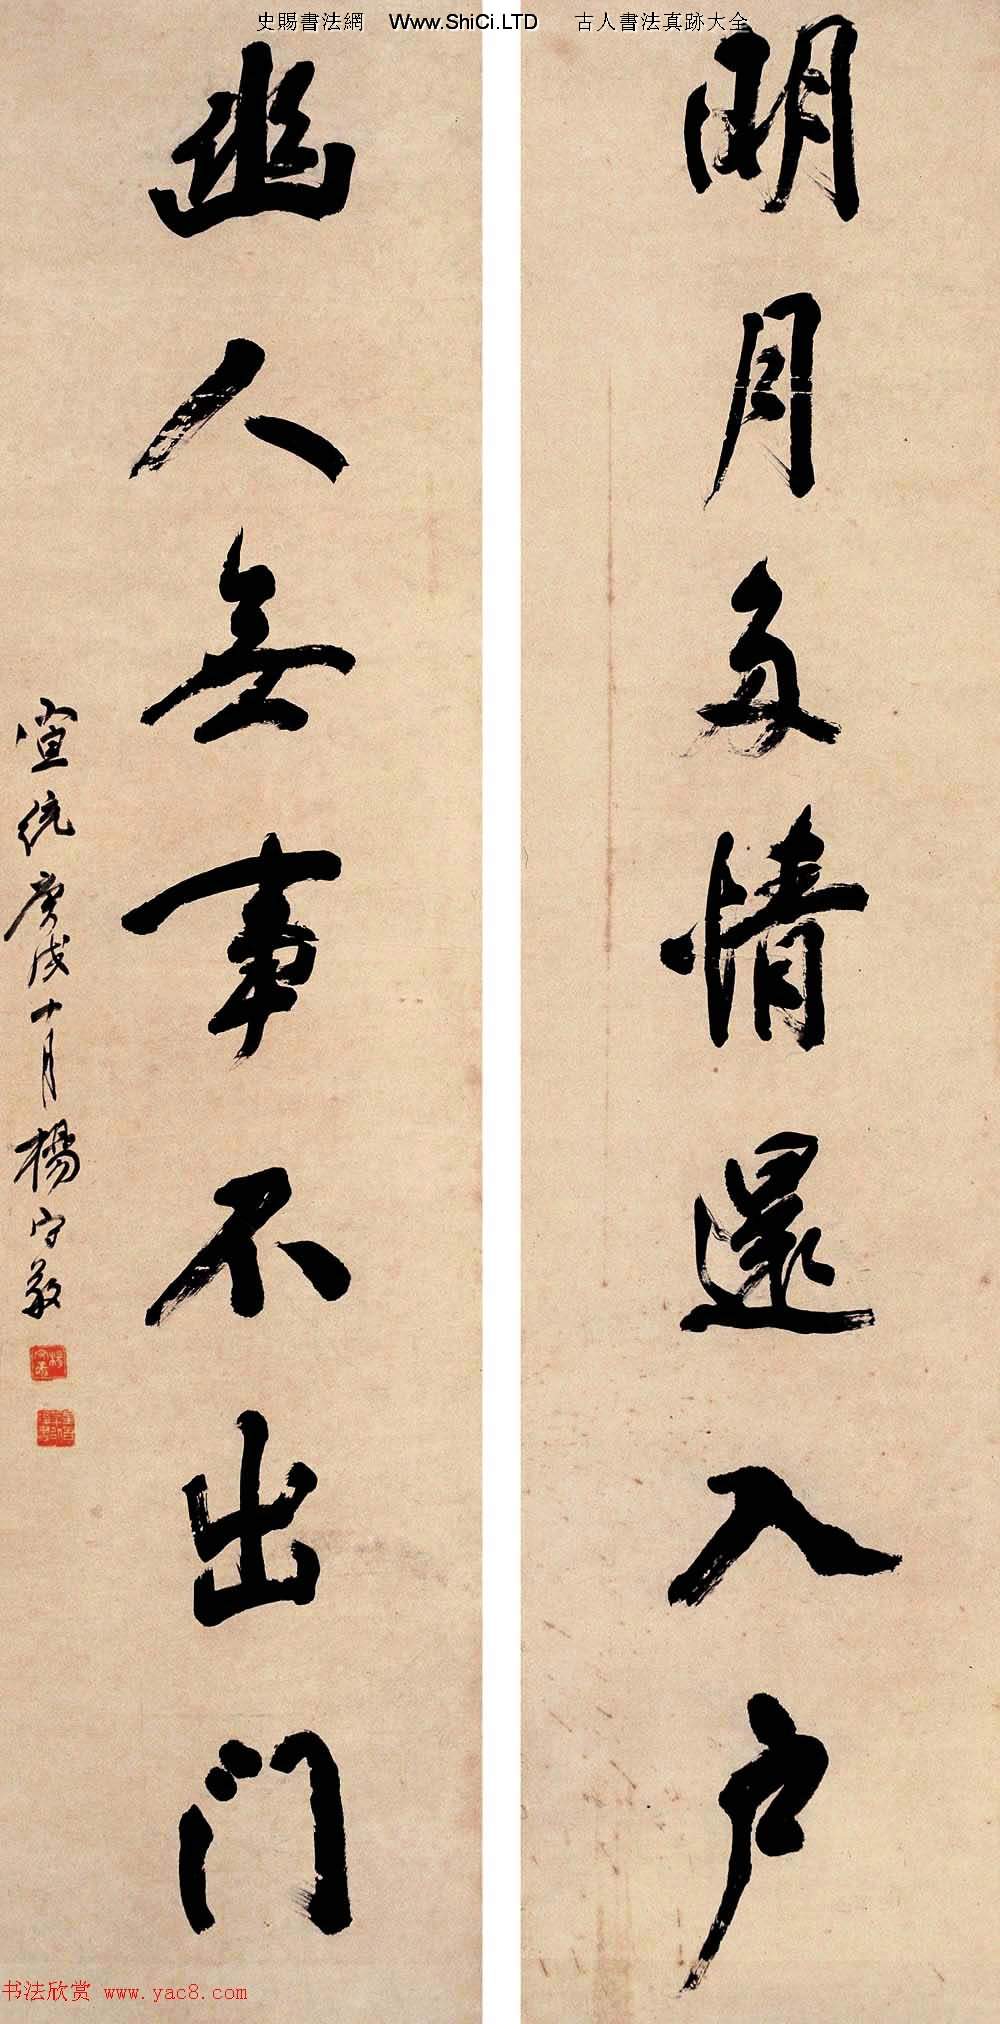 史賜書法網 Www.ShiCi.LTD 古人書法真跡大全
明月多情還入户
幽人無事不出门
宣統庚戌十月楊守敬
书法欣赏 www.yac8.com